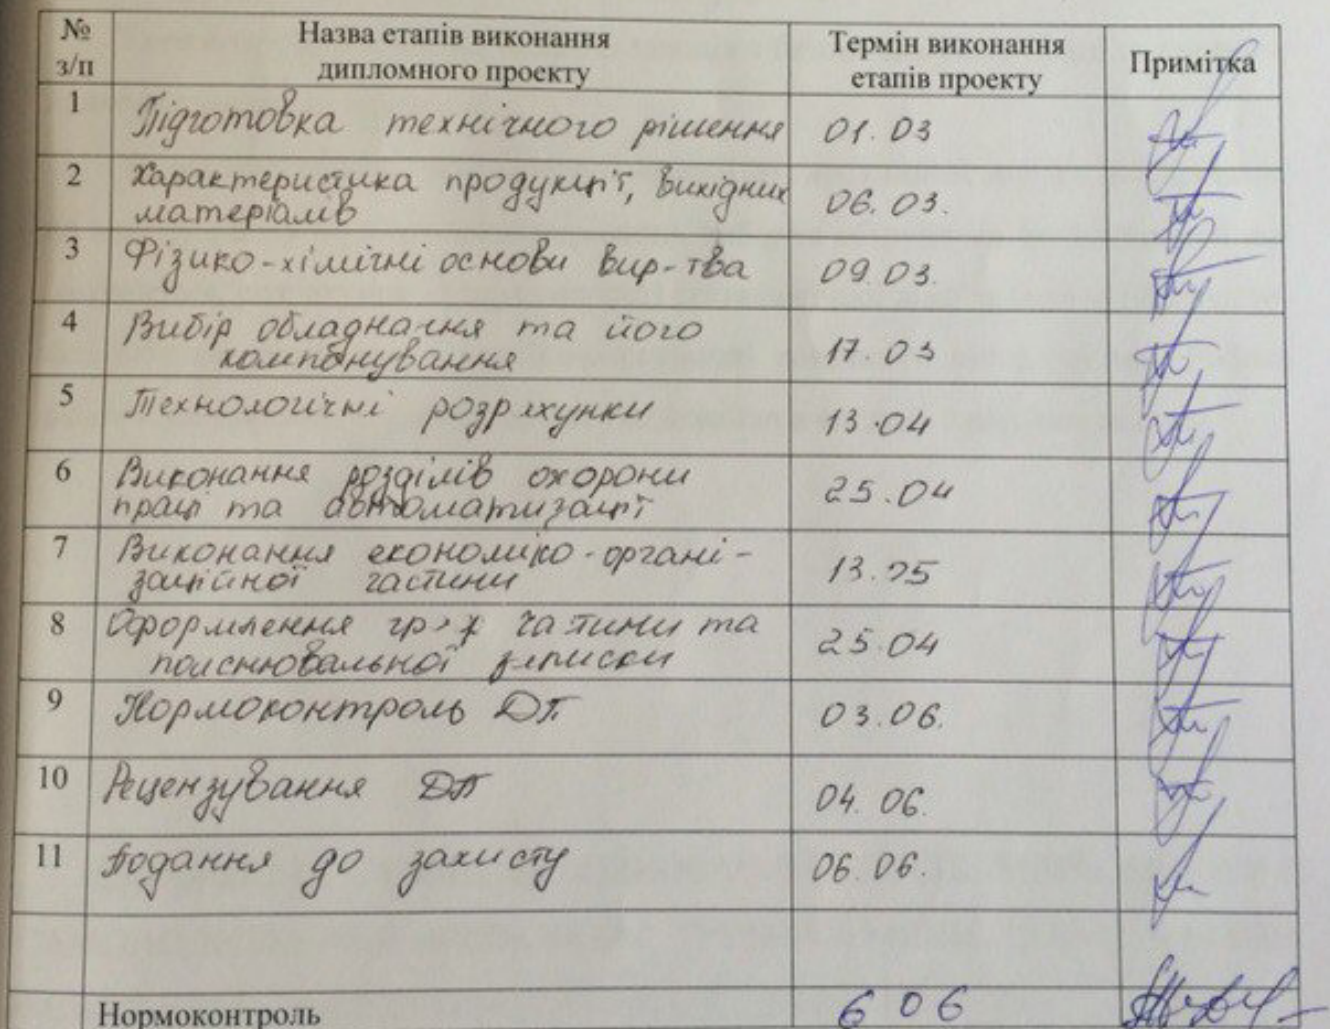 № з/п Назва етапів виконання дипломного проекту Термін виконання етапів проекту Примітка
1 Підготовка технічного рішення 01.03
2 Характеристика продукції, вихідних
матеріалів 06.03.
3 Фізико-хімічні основи вир-тва 09.03.
4 Вибір обладнання та його
компонування 17.03
5 Технологічні розрахунки 13.04
6 Виконання розділів охорони
праці та автоматизації 25.04
7 Виконання економіко-органі-
заційної частини 13.05
8 Оформлення частини та
пояснювальної записки 25.04
9 Нормоконтроль ДП 03.06.
10 Рецензування ДП 04.06.
11 Подання до захисту 06.06.
Нормоконтроль 6 06